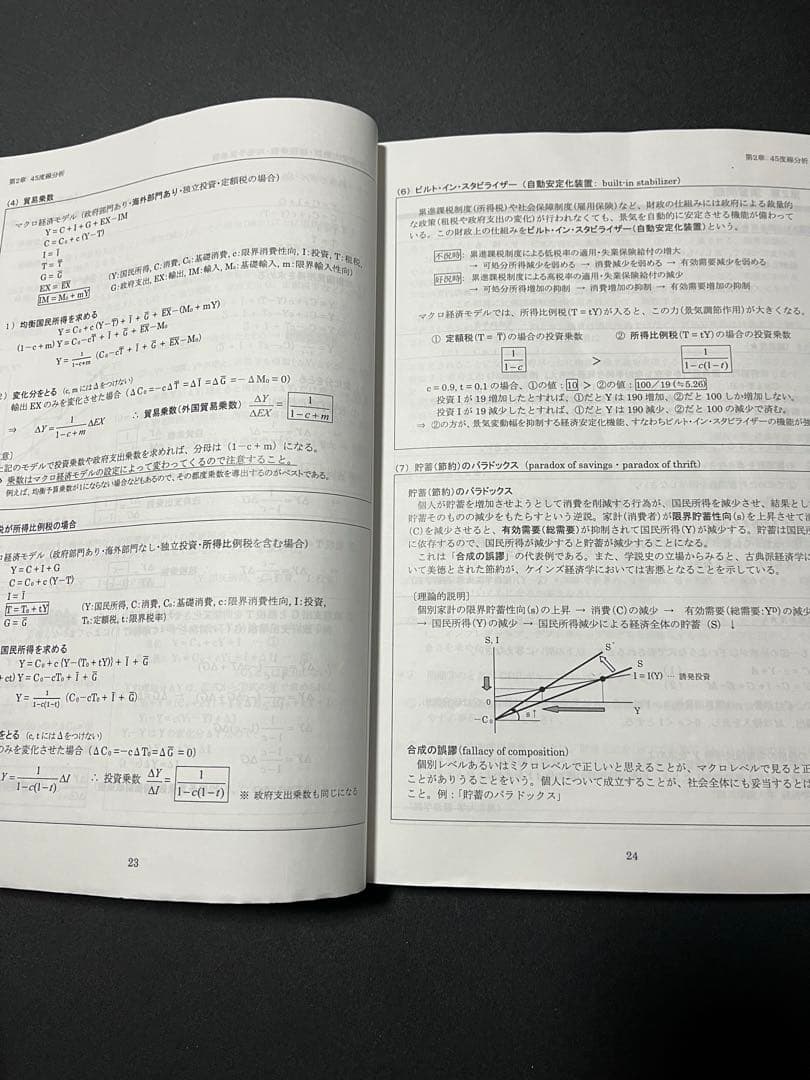 第2章 45度線分析
(4) 貿易乗数
マクロ経済モデル (政府部門あり・海外部門あり・独立投資・定額税の場合)
Y=C+I+G+EX-IM
C=C₀+c(Y-T)
I=Ī
T=T̄
G=Ḡ
EX=E̅X̅
IM=M₀+mY
(Y:国民所得, C:消費, C₀:基礎消費, c:限界消費性向, I:投資, T:租税,
G:政府支出, EX:輸出, IM:輸入, M₀:基礎輸入, m:限界輸入性向)
1) 均衡国民所得を求める
Y=C₀+c(Y-T̄)+Ī+Ḡ+E̅X̅-(M₀+mY)
(1-c+m)Y=C₀-cT̄+Ī+Ḡ+E̅X̅-M₀
Y=1/(1-c+m) (C₀-cT̄+Ī+Ḡ+E̅X̅-M₀)
2) 変化分をとる (c, mにはΔをつけない)
輸出 EX のみを変化させた場合 (ΔC₀=-cΔT̄=ΔĪ=ΔḠ=-ΔM₀=0)
⇒ ΔY=1/(1-c+m) ΔEX ∴ 貿易乗数(外国貿易乗数) ΔY/ΔEX=1/(1-c+m)
意)
上記のモデルで投資乗数や政府支出乗数を求めれば、分母は (1-c+m) になる。
乗数はマクロ経済モデルの設定によって変わってくるので注意すること。
例えば、均衡予算乗数が1にならない場合などもあるので、その都度乗数を導出するのがベストである。
税が所得比例税の場合
ロ経済モデル (政府部門あり・海外部門なし・独立投資・所得比例税を含む場合)
Y=C+I+G
C=C₀+c(Y-T)
I=Ī
T=T₀+tY
G=Ḡ
(Y:国民所得, C:消費, C₀:基礎消費, c:限界消費性向, I:投資,
T₀:定額税, t:限界税率)
国民所得を求める
Y=C₀+c{Y-(T₀+tY)}+Ī+Ḡ
+ct)Y=C₀-cT₀+Ī+Ḡ
Y=1/(1-c(1-t)) (C₀-cT₀+Ī+Ḡ)
をとる (c, tにはΔをつけない)
のみを変化させた場合 (ΔC₀=-cΔT₀=ΔḠ=0)
Y=1/(1-c(1-t)) ΔI ∴ 投資乗数 ΔY/ΔI=1/(1-c(1-t))
※ 政府支出乗数も同じになる
23
第2章 45度線分析
(6) ビルト・イン・スタビライザー (自動安定化装置: built-in stabilizer)
累進課税制度(所得税)や社会保障制度(雇用保険)など、財政の仕組みには政府による裁量的
な政策(租税や政府支出の変化)が行われなくても、景気を自動的に安定させる機能が備わって
いる。この財政上の仕組みをビルト・イン・スタビライザー(自動安定化装置)という。
不況時: 累進課税制度による低税率の適用・失業保険給付の増大
→ 可処分所得減少を弱める → 消費減少を弱める → 有効需要減少を弱める
好況時: 累進課税制度による高税率の適用・失業保険給付の減少
→ 可処分所得増加の抑制 → 消費増加の抑制 → 有効需要増加の抑制
マクロ経済モデルでは、所得比例税(T=tY)が入ると、この力(景気調節作用)が大きくなる。
① 定額税(T=T̄)の場合の投資乗数 ② 所得比例税(T=tY)の場合の投資乗数
1/(1-c) > 1/(1-c(1-t))
c=0.9, t=0.1 の場合、①の値:10 > ②の値:100/19(≒5.26)
投資 I が 19 増加したとすれば、①だと Y は 190 増加、②だと 100 しか増加しない。
投資 I が 19 減少したとすれば、①だと Y は 190 減少、②だと 100 の減少で済む。
⇒ ②の方が、景気変動幅を抑制する経済安定化機能、すなわちビルト・イン・スタビライザーの機能が強
(7) 貯蓄(節約)のパラドックス (paradox of savings・paradox of thrift)
貯蓄(節約)のパラドックス
個人が貯蓄を増加させようとして消費を削減する行為が、国民所得を減少させ、結果とし
貯蓄そのものの減少をもたらすという逆説。家計(消費者)が限界貯蓄性向(s)を上昇させて消
(C)を減少させると、有効需要(総需要)が抑制されて国民所得(Y)が減少する。貯蓄は国民所
に依存するので、国民所得が減少すると貯蓄が減少することになる。
これは「合成の誤謬」の代表例である。また、学説史の立場からみると、古典派経済学に
いて美徳とされた節約が、ケインズ経済学においては害悪となることを示している。
[理論的説明]
個別家計の限界貯蓄性向(s)の上昇 → 消費(C)の減少 → 有効需要(総需要:Yᴰ)の減少
→ 国民所得(Y)の減少 → 国民所得減少による経済全体の貯蓄 (S) ↓
S, I
S´
S
I=I(Y) … 誘発投資
0
Y
-C₀
s↑
合成の誤謬(fallacy of composition)
個別レベルあるいはミクロレベルで正しいと思えることが、マクロレベルで見ると正
ことがありうることをいう。個人について成立することが、社会全体にも妥当するとは
こと。例:「貯蓄のパラドックス」
24